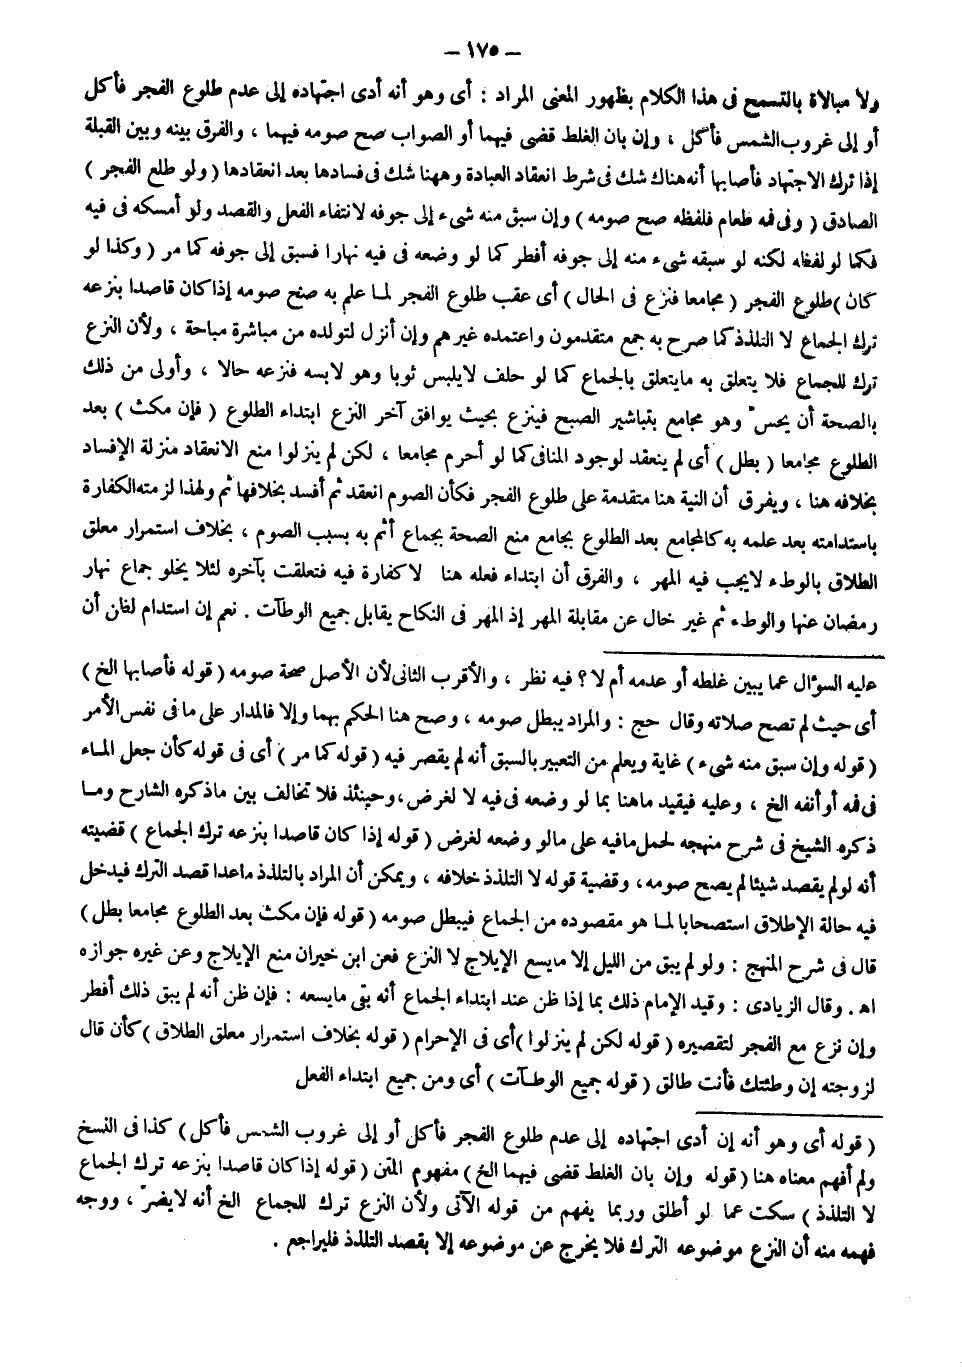 – ١٧٥ –
ولا مبالاة بالتسمح فى هذا الكلام بظهور المعنى المراد : أى وهو أنه أدى اجتهاده إلى عدم طلوع الفجر فأكل
أو إلى غروب الشمس فأكل ، وإن بان الغلط قضى فيهما أو الصواب صح صومه فيهما ، والفرق بينه وبين القبلة
إذا ترك الاجتهاد فأصابها أنه هناك شك فى شرط انعقاد العبادة وههنا شك فى فسادها بعد انعقادها ( ولو طلع الفجر )
الصادق ( وفى فمه طعام فلفظه صح صومه ) وإن سبق منه شىء إلى جوفه لانتفاء الفعل والقصد ولو أمسكه فى فيه
فكما لو لفظه لكنه لو سبقه شىء منه إلى جوفه أفطر كما لو وضعه فى فيه نهارا فسبق إلى جوفه كما مر ( وكذا لو
كان ) طلوع الفجر ( مجامعا فنزع فى الحال ) أى عقب طلوع الفجر لما علم به صح صومه إذا كان قاصدا بنزعه
ترك الجماع لا التلذذ كما صرح به جمع متقدمون واعتمده غيرهم وإن أنزل لتولده من مباشرة مباحة ، ولأن النزع
ترك للجماع فلا يتعلق به مايتعلق بالجماع كما لو حلف لايلبس ثوبا وهو لابسه فنزعه حالا ، وأولى من ذلك
بالصحة أن يحسّ وهو مجامع بتباشير الصبح فينزع بحيث يوافق آخر النزع ابتداء الطلوع ( فإن مكث ) بعد
الطلوع مجامعا ( بطل ) أى لم ينعقد لوجود المنافى كما لو أحرم مجامعا ، لكن لم ينزلوا منع الانعقاد منزلة الإفساد
بخلافه هنا ، ويفرق أن النية هنا متقدمة على طلوع الفجر فكأن الصوم انعقد ثم أفسد بخلافها ثم ولهذا لزمته الكفارة
باستدامته بعد علمه به كالمجامع بعد الطلوع بجامع منع الصحة بجماع أثم به بسبب الصوم ، بخلاف استمرار معلق
الطلاق بالوطء لايجب فيه المهر ، والفرق أن ابتداء فعله هنا لا كفارة فيه فتعلقت بآخره لئلا يخلو جماع نهار
رمضان عنها والوطء ثم غير خال عن مقابلة المهر إذ المهر فى النكاح يقابل جميع الوطآت . نعم إن استدام لظن أن
عليه السؤال عما يبين غلطه أو عدمه أم لا ؟ فيه نظر ، والأقرب الثانى لأن الأصل صحة صومه ( قوله فأصابها الخ )
أى حيث لم تصح صلاته وقال حج : والمراد يبطل صومه ، وصح هنا الحكم بهما وإلا فالمدار على ما فى نفس الأمر
( قوله وإن سبق منه شىء ) غاية ويعلم من التعبير بالسبق أنه لم يقصر فيه ( قوله كما مر ) أى فى قوله كأن جعل الماء
فى فمه أو أنفه الخ ، وعليه فيقيد ماهنا بما لو وضعه فى فيه لا لغرض، وحينئذ فلا تخالف بين ماذكره الشارح وما
ذكره الشيخ فى شرح منهجه لحمل مافيه على مالو وضعه لغرض ( قوله إذا كان قاصدا بنزعه ترك الجماع ) قضيته
أنه لو لم يقصد شيئا لم يصح صومه، وقضية قوله لا التلذذ خلافه ، ويمكن أن المراد بالتلذذ ماعدا قصد الترك فيدخل
فيه حالة الإطلاق استصحابا لما هو مقصوده من الجماع فيبطل صومه ( قوله فإن مكث بعد الطلوع مجامعا بطل )
قال فى شرح المنهج : ولو لم يبق من الليل إلا مايسع الإيلاج لا النزع فعن ابن خيران منع الإيلاج وعن غيره جوازه
اهـ . وقال الزيادى : وقيد الإمام ذلك بما إذا ظن عند ابتداء الجماع أنه بقى مايسعه : فإن ظن أنه لم يبق ذلك أفطر
وإن نزع مع الفجر لتقصيره ( قوله لكن لم ينزلوا ) أى فى الإحرام ( قوله بخلاف استمرار معلق الطلاق ) كأن قال
لزوجته إن وطئتك فأنت طالق ( قوله جميع الوطآت ) أى ومن جميع ابتداء الفعل
( قوله أى وهو أنه إن أدى اجتهاده إلى عدم طلوع الفجر فأكل أو إلى غروب الشمس فأكل ) كذا فى النسخ
ولم أفهم معناه هنا ( قوله وإن بان الغلط قضى فيهما الخ ) مفهوم المتن ( قوله إذا كان قاصدا بنزعه ترك الجماع
لا التلذذ ) سكت عما لو أطلق وربما يفهم من قوله الآتى ولأن النزع ترك للجماع الخ أنه لايضرّ ، ووجه
فهمه منه أن النزع موضوعه الترك فلا يخرج عن موضوعه إلا بقصد التلذذ فليراجع .